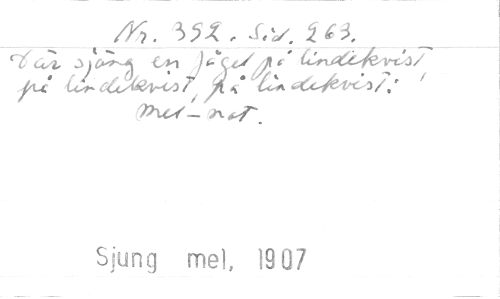 Nr. 392. Sid. 263.
Där sjöng en fågel på lindekvist,
på lindekvist, på lindekvist:
mel-not.
Sjung mel, 1907